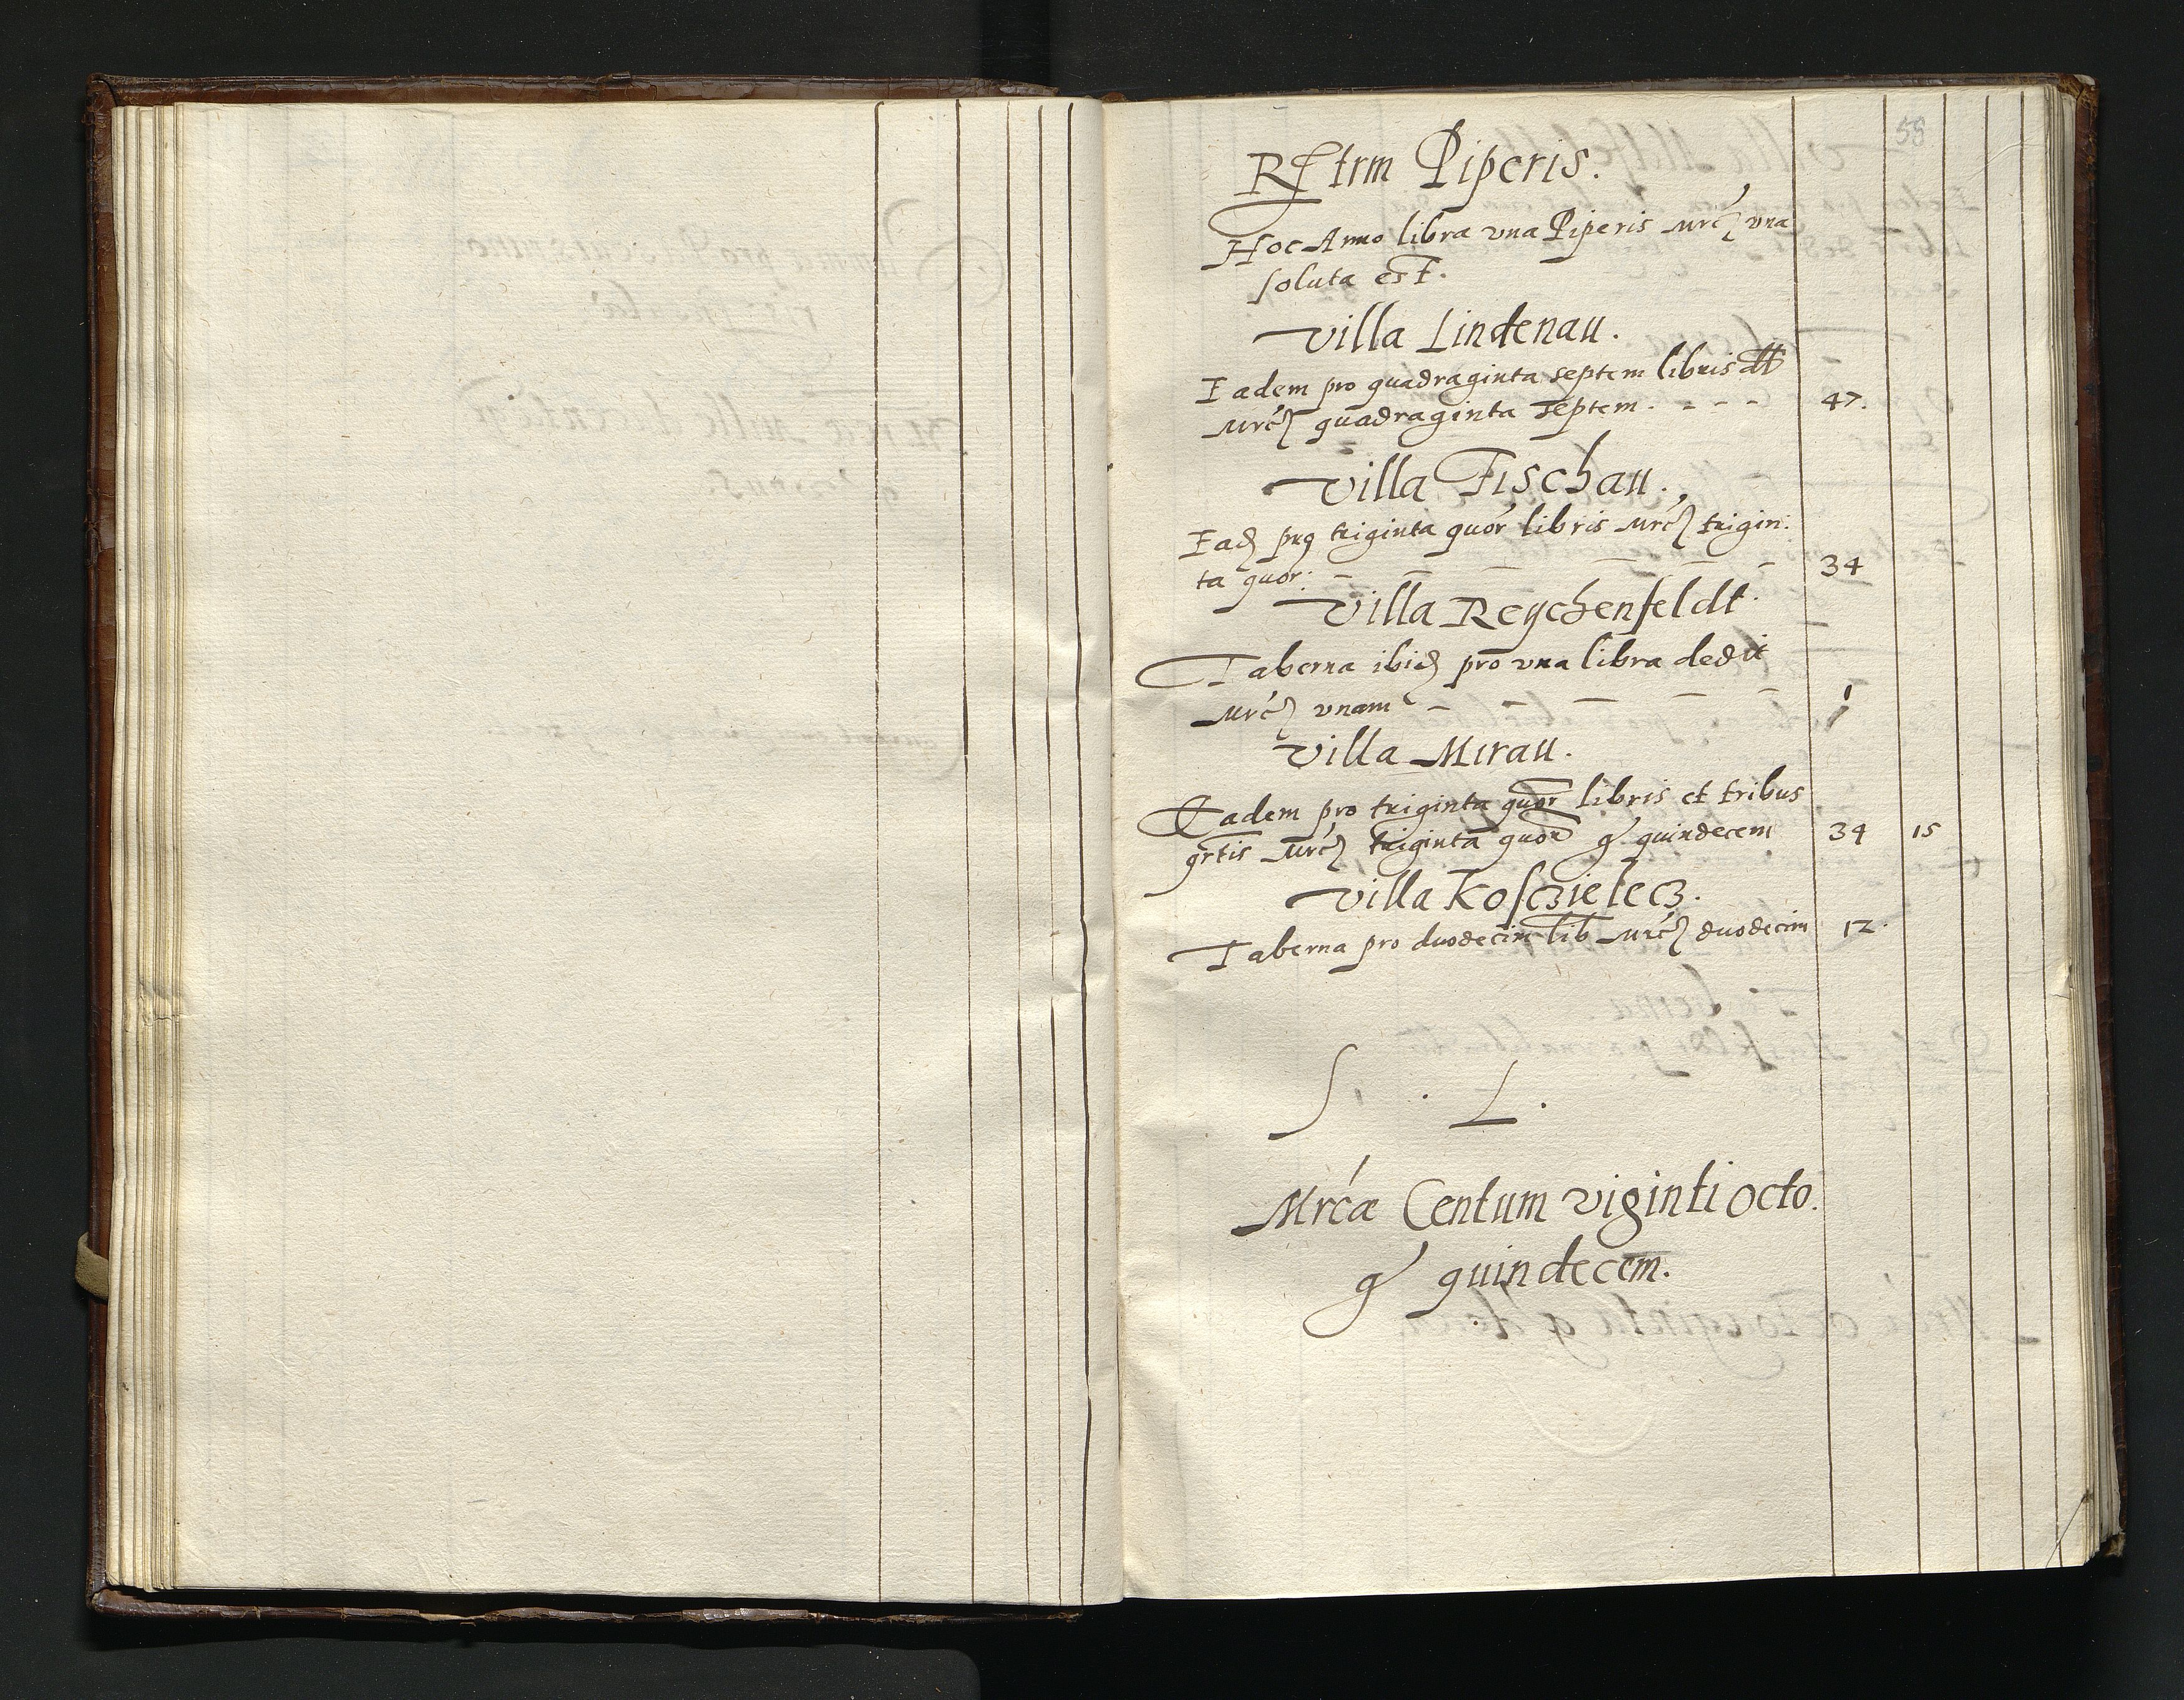 55
Rſtrm Piperis.
Hoc Anno libra vna Piperis Mrcȝ vna
soluta est.
Villa Lindenau.
Eadem pro quadraginta septem libris dtt
Mrcȝ quadraginta septem. - - - 47.
Villa Fischau.
Eadȝ pro triginta quor libris Mrcȝ trigin:
ta quor: - - - - - - 34
Villa Reychenfeldt.
Taberna ibidȝ pro vna libra dedit
Mrcȝ vnam - - - - - 1
Villa Mirau.
Eadem pro triginta quor libris et tribus
grtis Mrcȝ triginta quor g quindecem 34 15
Villa Kosczielecz.
Taberna pro duodecim lib Mrcȝ duodecim 12.
S . L .
Mrcæ Centum viginti octo.
g quindecem.